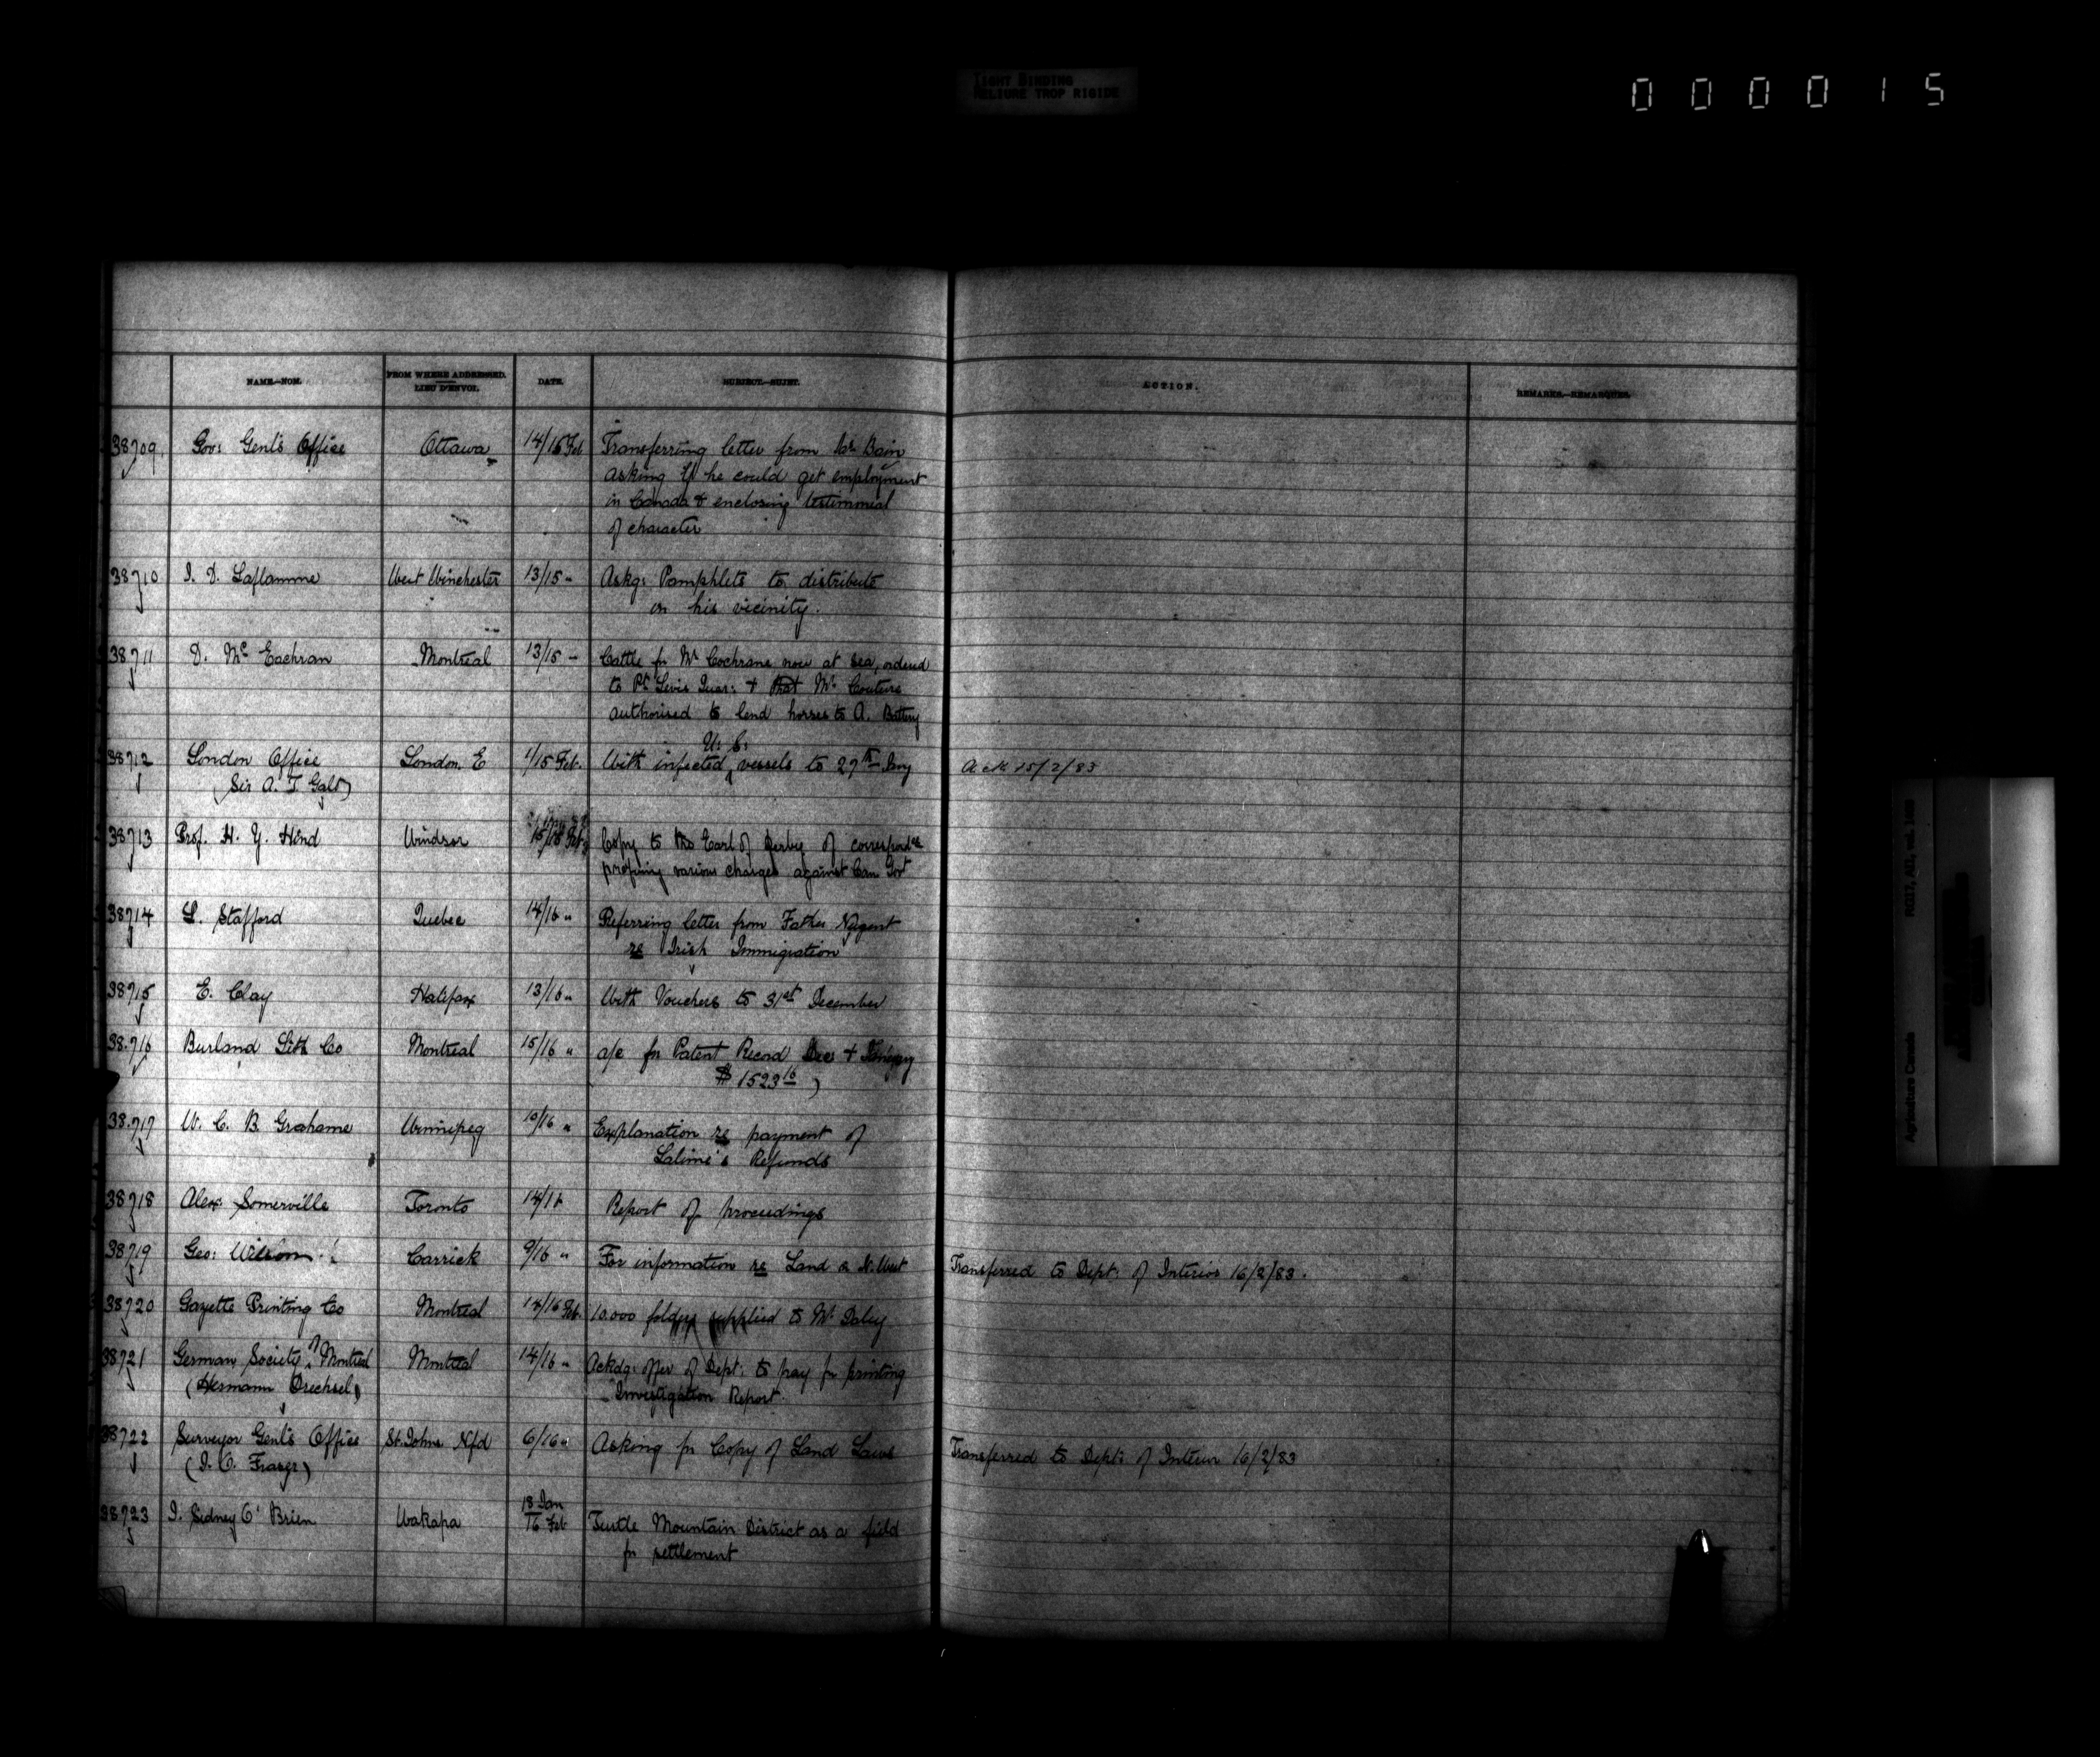 TIGHT BINDING
RELIURE TROP RIGIDE
000015
NAME.—NOM.
FROM WHERE ADDRESSED.
LIEU D'ENVOI.
DATE.
SUBJECT.—SUJET.
ACTION.
REMARKS.—REMARQUES.
38709 Gov: Genl's Office Ottawa 14/15 Feb Transferring letter from Mr Bain
asking if he could get employment
in Canada & enclosing testimonial
of character
38710 J. D. Laflamme West Winchester 13/15 " Askg: Pamphlets to distribute
in his vicinity.
38711 D. Mc Eachran Montreal 13/15 " Cattle for Mr Cochrane now at sea, ordered
to Pt Levis Quar: & that Mr Couture
authorised to lend horses to A. Battery
U. S.
38712 London Office London. E 1/15 Feb. With infected vessels to 27th Jany Ack 15/2/83
(Sir A. T Galt)
38713 Prof. H. Y. Hind Windsor 15/16 Feb Copy to the Earl of Derby of correspdce
various charges against Can Govt
38714 L. Stafford Quebec 14/16 " Referring letter from Father Nugent
re Irish Immigration
38715 E. Clay Halifax 13/16 " With Vouchers to 31st December
38716 Burland Lith Co Montreal 15/16 " a/c for Patent Record Dec &
$1523 16
38717 W. C. B. Grahame Winnipeg 10/16 " Explanation re payment of
Refunds
38718 Alex Somerville Toronto 14/16 Report of proceedings
38719 Geo: Wilson Carrick 9/16 " For information re Land in N. West Transferred to Dept: of Interior 16/2/83.
38720 Gazette Printing Co Montreal 14/16 Feb. 10.000 folders supplied to Mr Daley
38721 German Society of Montreal Montreal 14/16 " Ackdg: offer of Dept: to pay for printing
(Hermann Drechsel) Investigation Report.
38722 Surveyor Genl's Office St. Johns Nfd 6/16 " Asking for Copy of Land Laws Transferred to Dept: of Interior 16/2/83
(J. O. Fraser)
18 Jan
38723 J. Sidney O'Brien Wakapa 16 Feb Turtle Mountain District as a field
for settlement
Agriculture Canada RG17, AII, vol. 1489